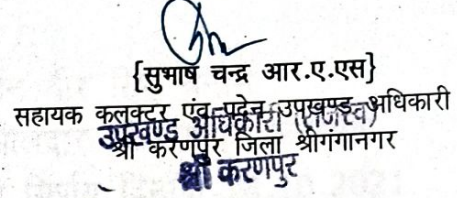 {सुभाष चन्द्र आर.ए.एस}
सहायक कलक्टर एंव पदेन उपखण्ड अधिकारी
उपखण्ड अधिकारी (राजस्व)
श्री करणपुर जिला श्रीगंगानगर
श्री करणपुर